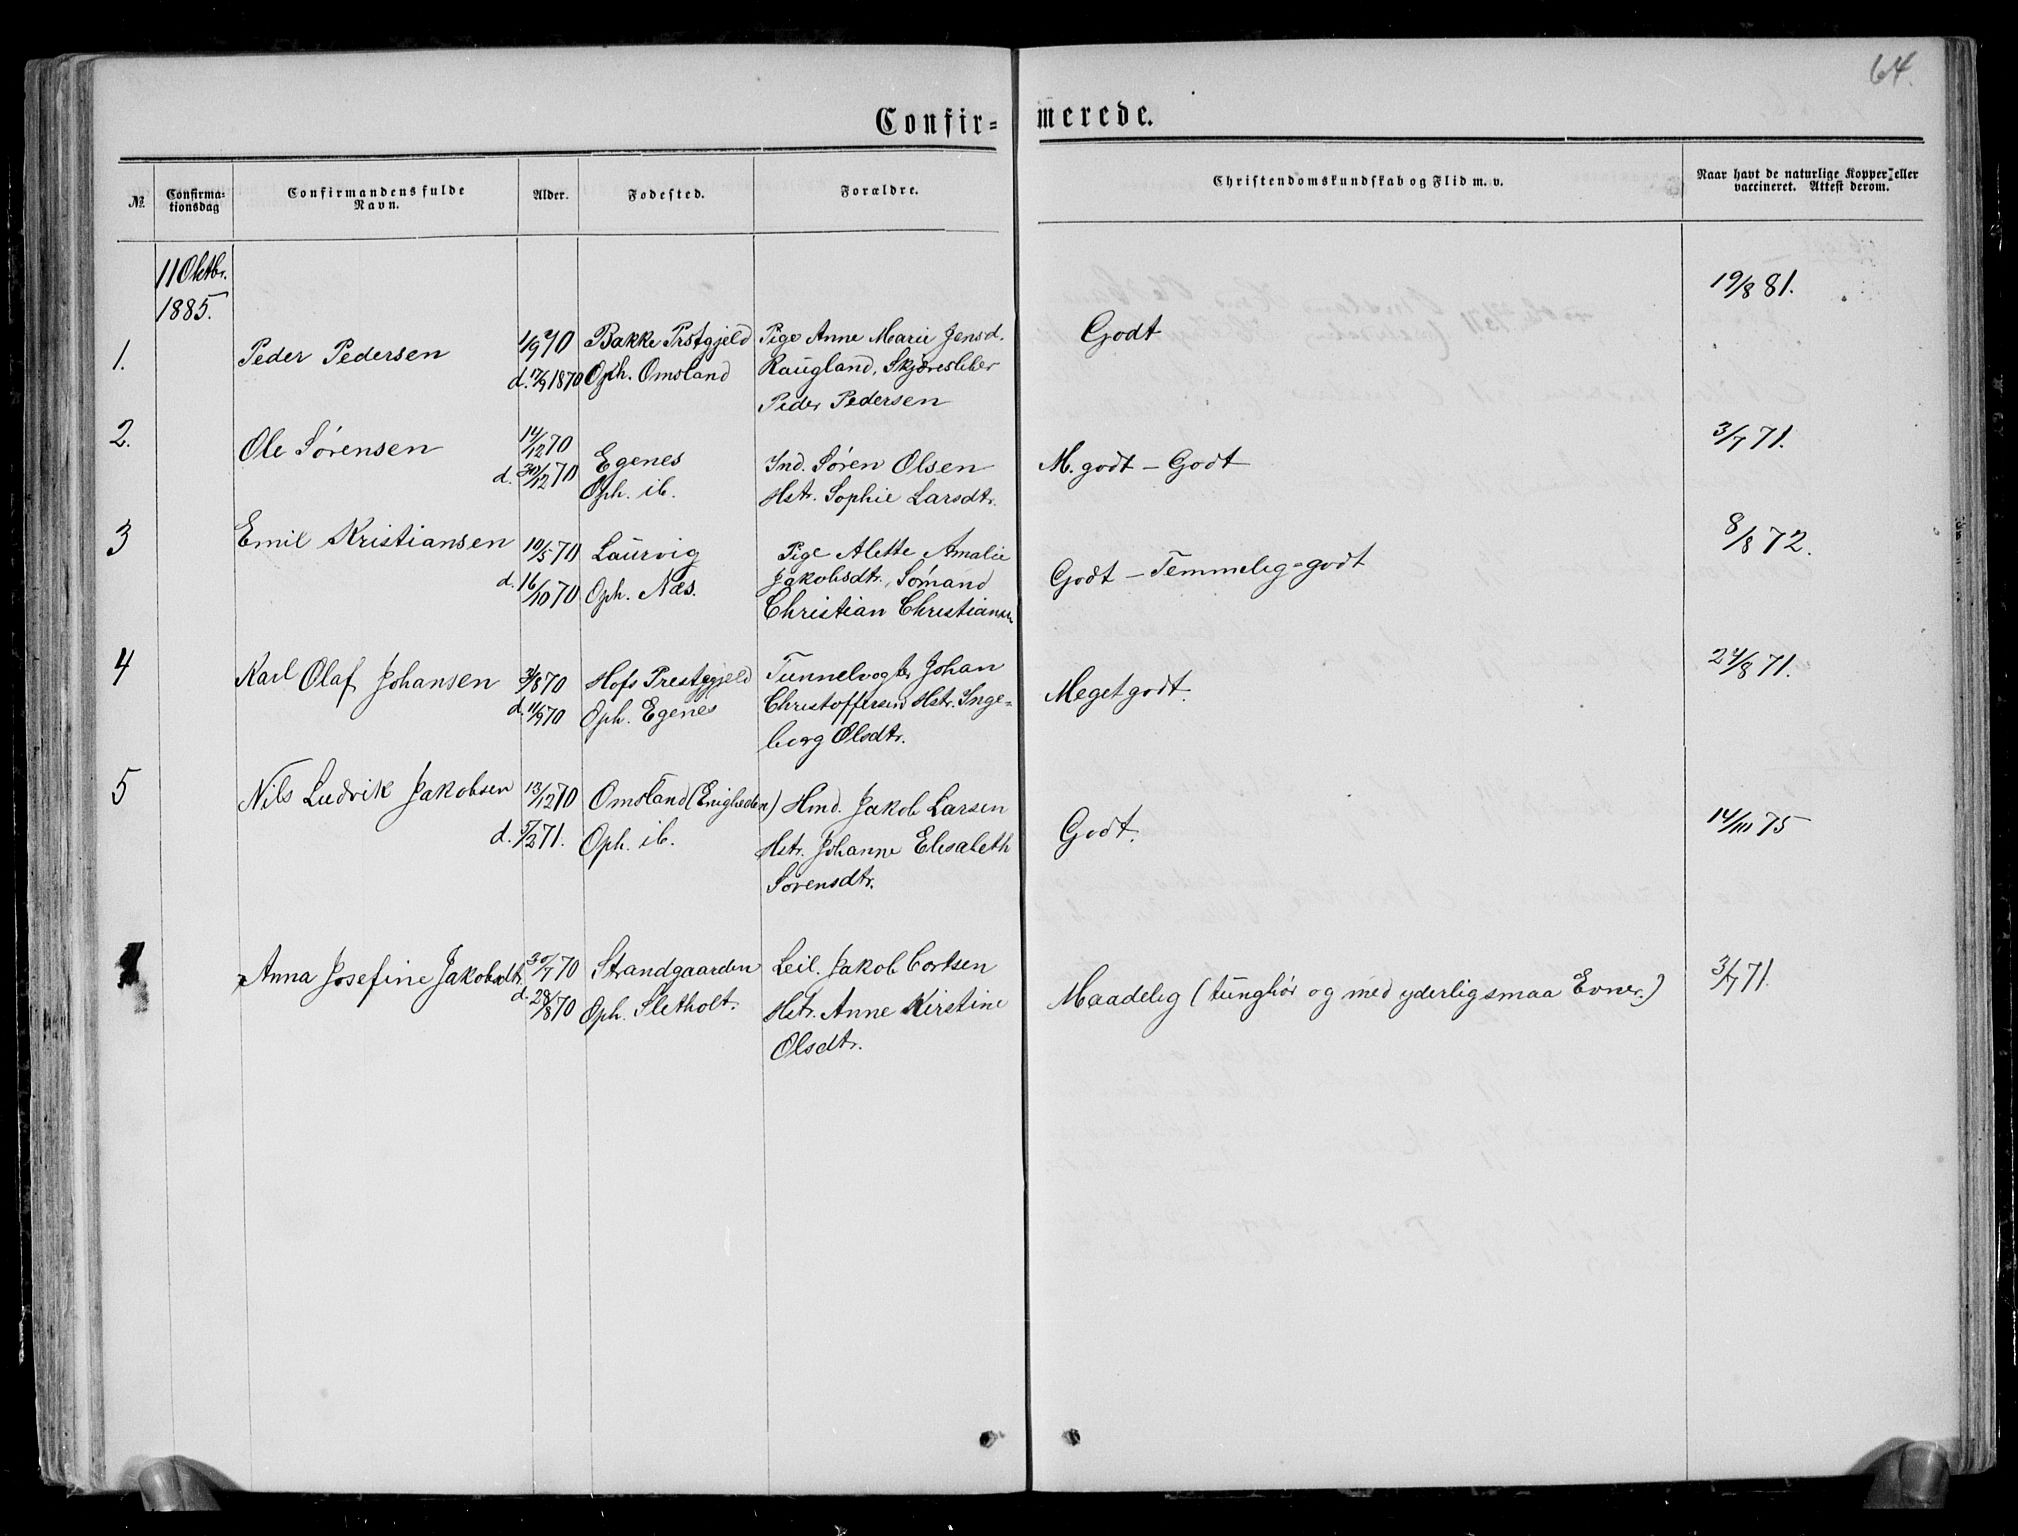 64.
Confir- merede.
№ Confirma-tionsdag Confirmandens fulde Navn. Alder. Fødested. Forældre. Christendomskundskab og Flid m. v. Naar havt de naturlige Kopper, eller vaccineret. Attest derom.
11 Oktbr.
1885.
1. Peder Pedersen 1/9 70 Bakke Prstgjeld Pige Anne Marie Jensd. Godt 19/8 81.
d. 17/9 1870 Oph. Omsland Raugland, Skjæresliber
Peder Pedersen
2. Ole Sørensen 14/12 70 Egenes Ind. Søren Olsen M. godt - Godt 3/7 71.
d. 30/12 70 Oph. ib. Hstr. Sophie Larsdtr.
3 Emil Kristiansen 10/5 70 Laurvig Pige Alette Amalie Godt - Temmelig-godt 8/8 72.
d. 16/10 70 Oph. Næs. Jakobsdtr., Sømand
Christian Christiansen
4 Karl Olaf Johansen 3/8 70 Hofs Prestegjeld Tunnelvogter Johan Megetgodt. 24/8 71.
d. 11/9 70 Oph. Egenes Christoffersen Hstr. Inge-
borg Olsdtr.
5 Nils Ludvik Jakobsen 13/12 70 Omsland (Enigheden) Hmd. Jakob Larsen Godt. 14/10 75
d. 5/2 71. Oph. ib. Hstr. Johanne Elisabeth
Sørensdtr.
1 Anna Josefine Jakobsdtr. 30/7 70 Strandgaarden Leil. Jakob Cortsen Maadelig (tunghør og med yderlig smaa Evner.) 3/7 71.
d. 28/8 70 Oph. Sletholt. Hstr. Anne Kirstine
Olsdtr.